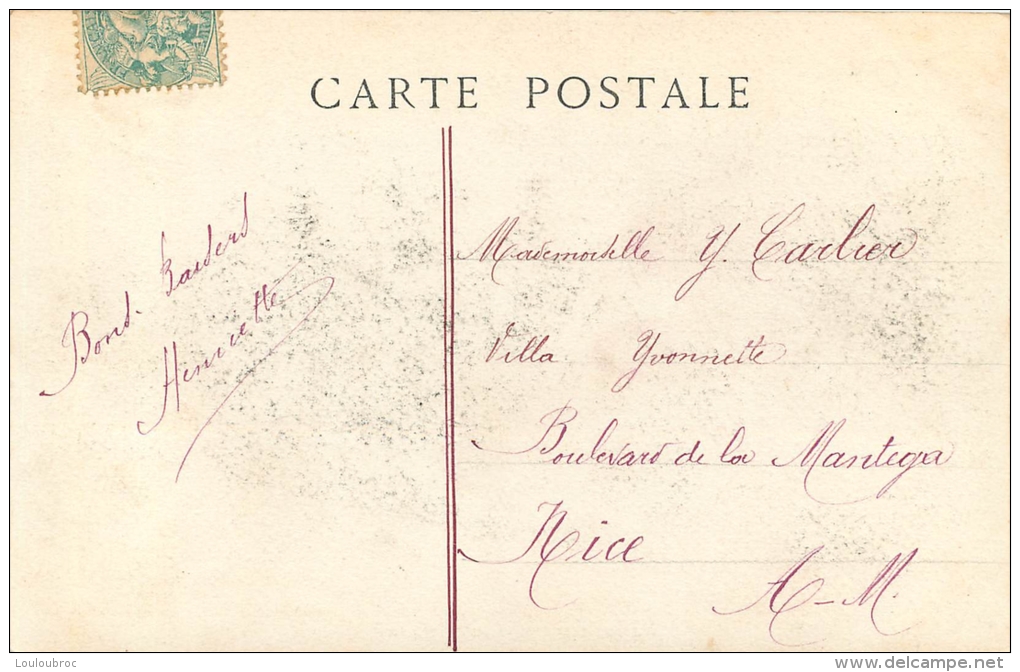 CARTE POSTALE
Bons Baisers
Henriette
Mademoiselle Y. Carlier
Villa Yvonnette
Boulevard de la Mantega
Nice
A-M.
Louloubroc
www.delcampe.net